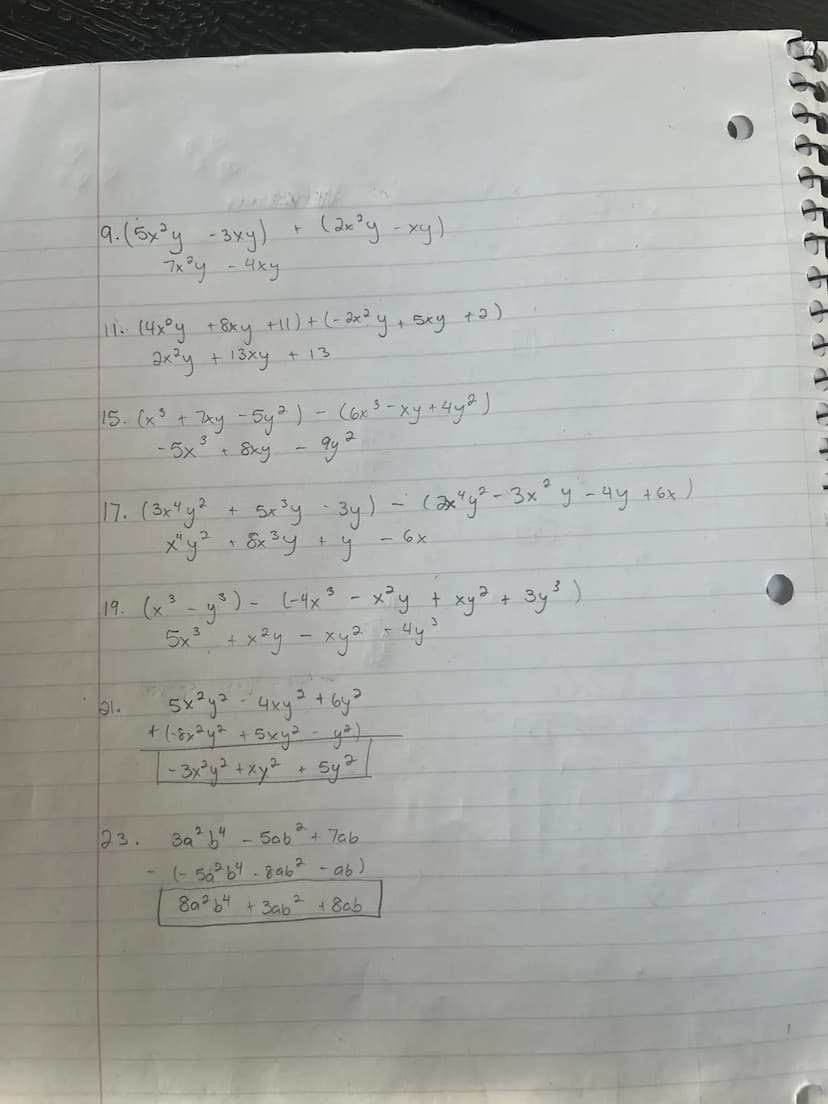 9. (5x²y - 3xy) + (2x²y - xy)
7x²y - 4xy
11. (4x²y + 8xy + 11) + (-2x²y + 5xy + 2)
2x²y + 13xy + 13
15. (x³ + 7xy - 5y²) - (6x³ - xy + 4y²)
-5x³ + 8xy - 9y²
17. (3x⁴y² + 5x³y - 3y) - (2x⁴y² - 3x³y - 4y + 6x)
x⁴y² + 8x³y + y - 6x
19. (x³ - y³) - (-4x³ - x²y + xy² + 3y³)
5x³ + x²y - xy² - 4y³
21. 5x²y² - 4xy² + 6y²
+ (-8x²y² + 5xy² - y²)
-3x²y² + xy² + 5y²
23. 3a²b⁴ - 5ab² + 7ab
- (-5a²b⁴ - 8ab² - ab)
8a²b⁴ + 3ab² + 8ab